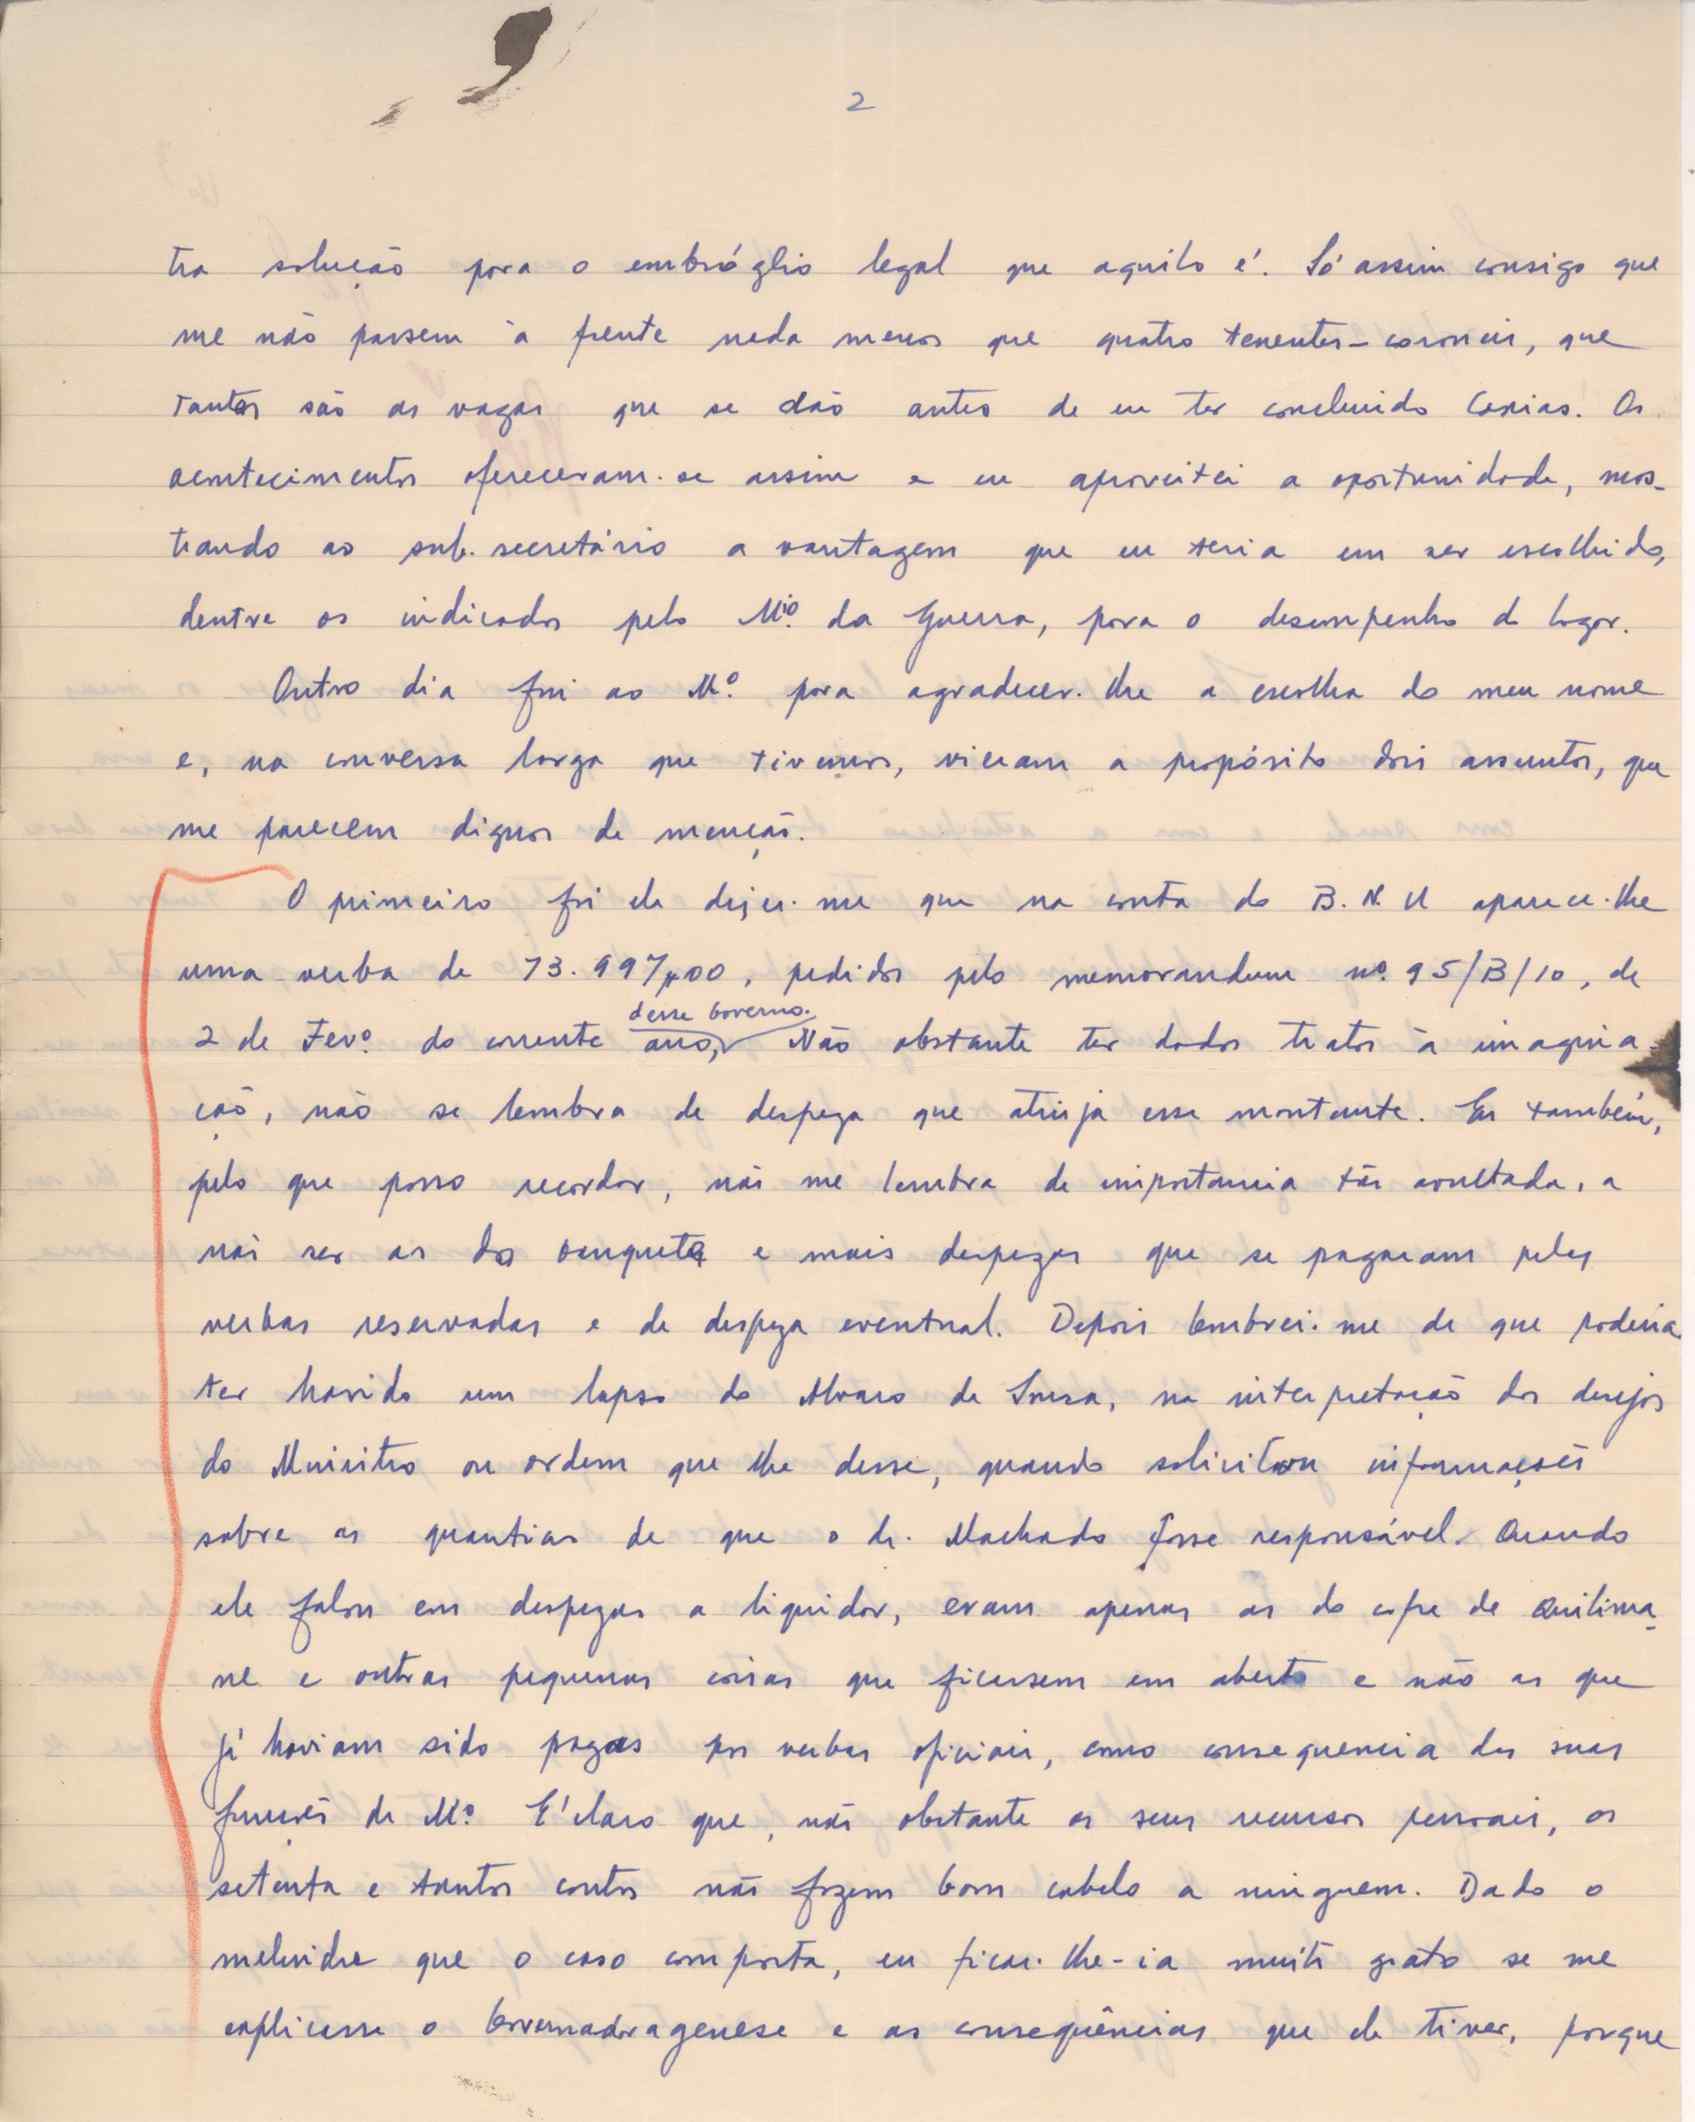 2
tra solução para o embróglio legal que aquilo é. Só assim consigo que
me não passem à frente nada menos que quatro tenentes-coroneis, que
tantas são as vagas que se dão antes de eu ter concluido Caxias. Os
acontecimentos ofereceram-se assim e eu aproveitei a oportunidade, mos-
trando ao sub-secretário a vantagem que eu teria em ser escolhido,
dentre os indicados pelo Mio. da Guerra, para o desempenho do lugar.
Outro dia fui ao Mº. para agradecer-lhe a escolha do meu nome
e, na conversa larga que tivemos, vieram a propósito dois assuntos, que
me parecem dignos de menção.
O primeiro foi ele dizer-me que na conta do B. N. U aparece-lhe
uma verba de 73.997$00, pedidos pelo memorandum nº. 95/B/10, de
desse Governo.
2 de Fevº. do corrente ano, Não obstante ter dados tratos à imagina-
ção, não se lembra de despeza que atinja esse montante. Eu também,
pelo que posso recordar, não me lembra de importancia tão avultada, a
não ser as do banquete e mais despezas que se pagaram pelas
verbas reservadas e de despeza eventual. Depois lembrei-me de que poderia
ter havido um lapso do Alvaro de Sousa, na interpretação dos desejos
do Ministro ou ordem que lhe desse, quando solicitou informações
sobre as quantias de que o dr. Machado fosse responsável. Quando
ele falou em despezas a liquidar, eram apenas as do cofre de Quelima-
ne e outras pequenas coisas que ficassem em aberto e não as que
já haviam sido pagas por verbas oficiais, como consequencia das suas
funções de Mº. E' claro que, não obstante os seus recursos pessoais, os
setenta e tantos contos não fazem bom cabelo a ninguem. Dado o
melindre que o caso comporta, eu ficar-lhe-ia muito grato se me
explicasse o e as consequências que ele tiver, porque